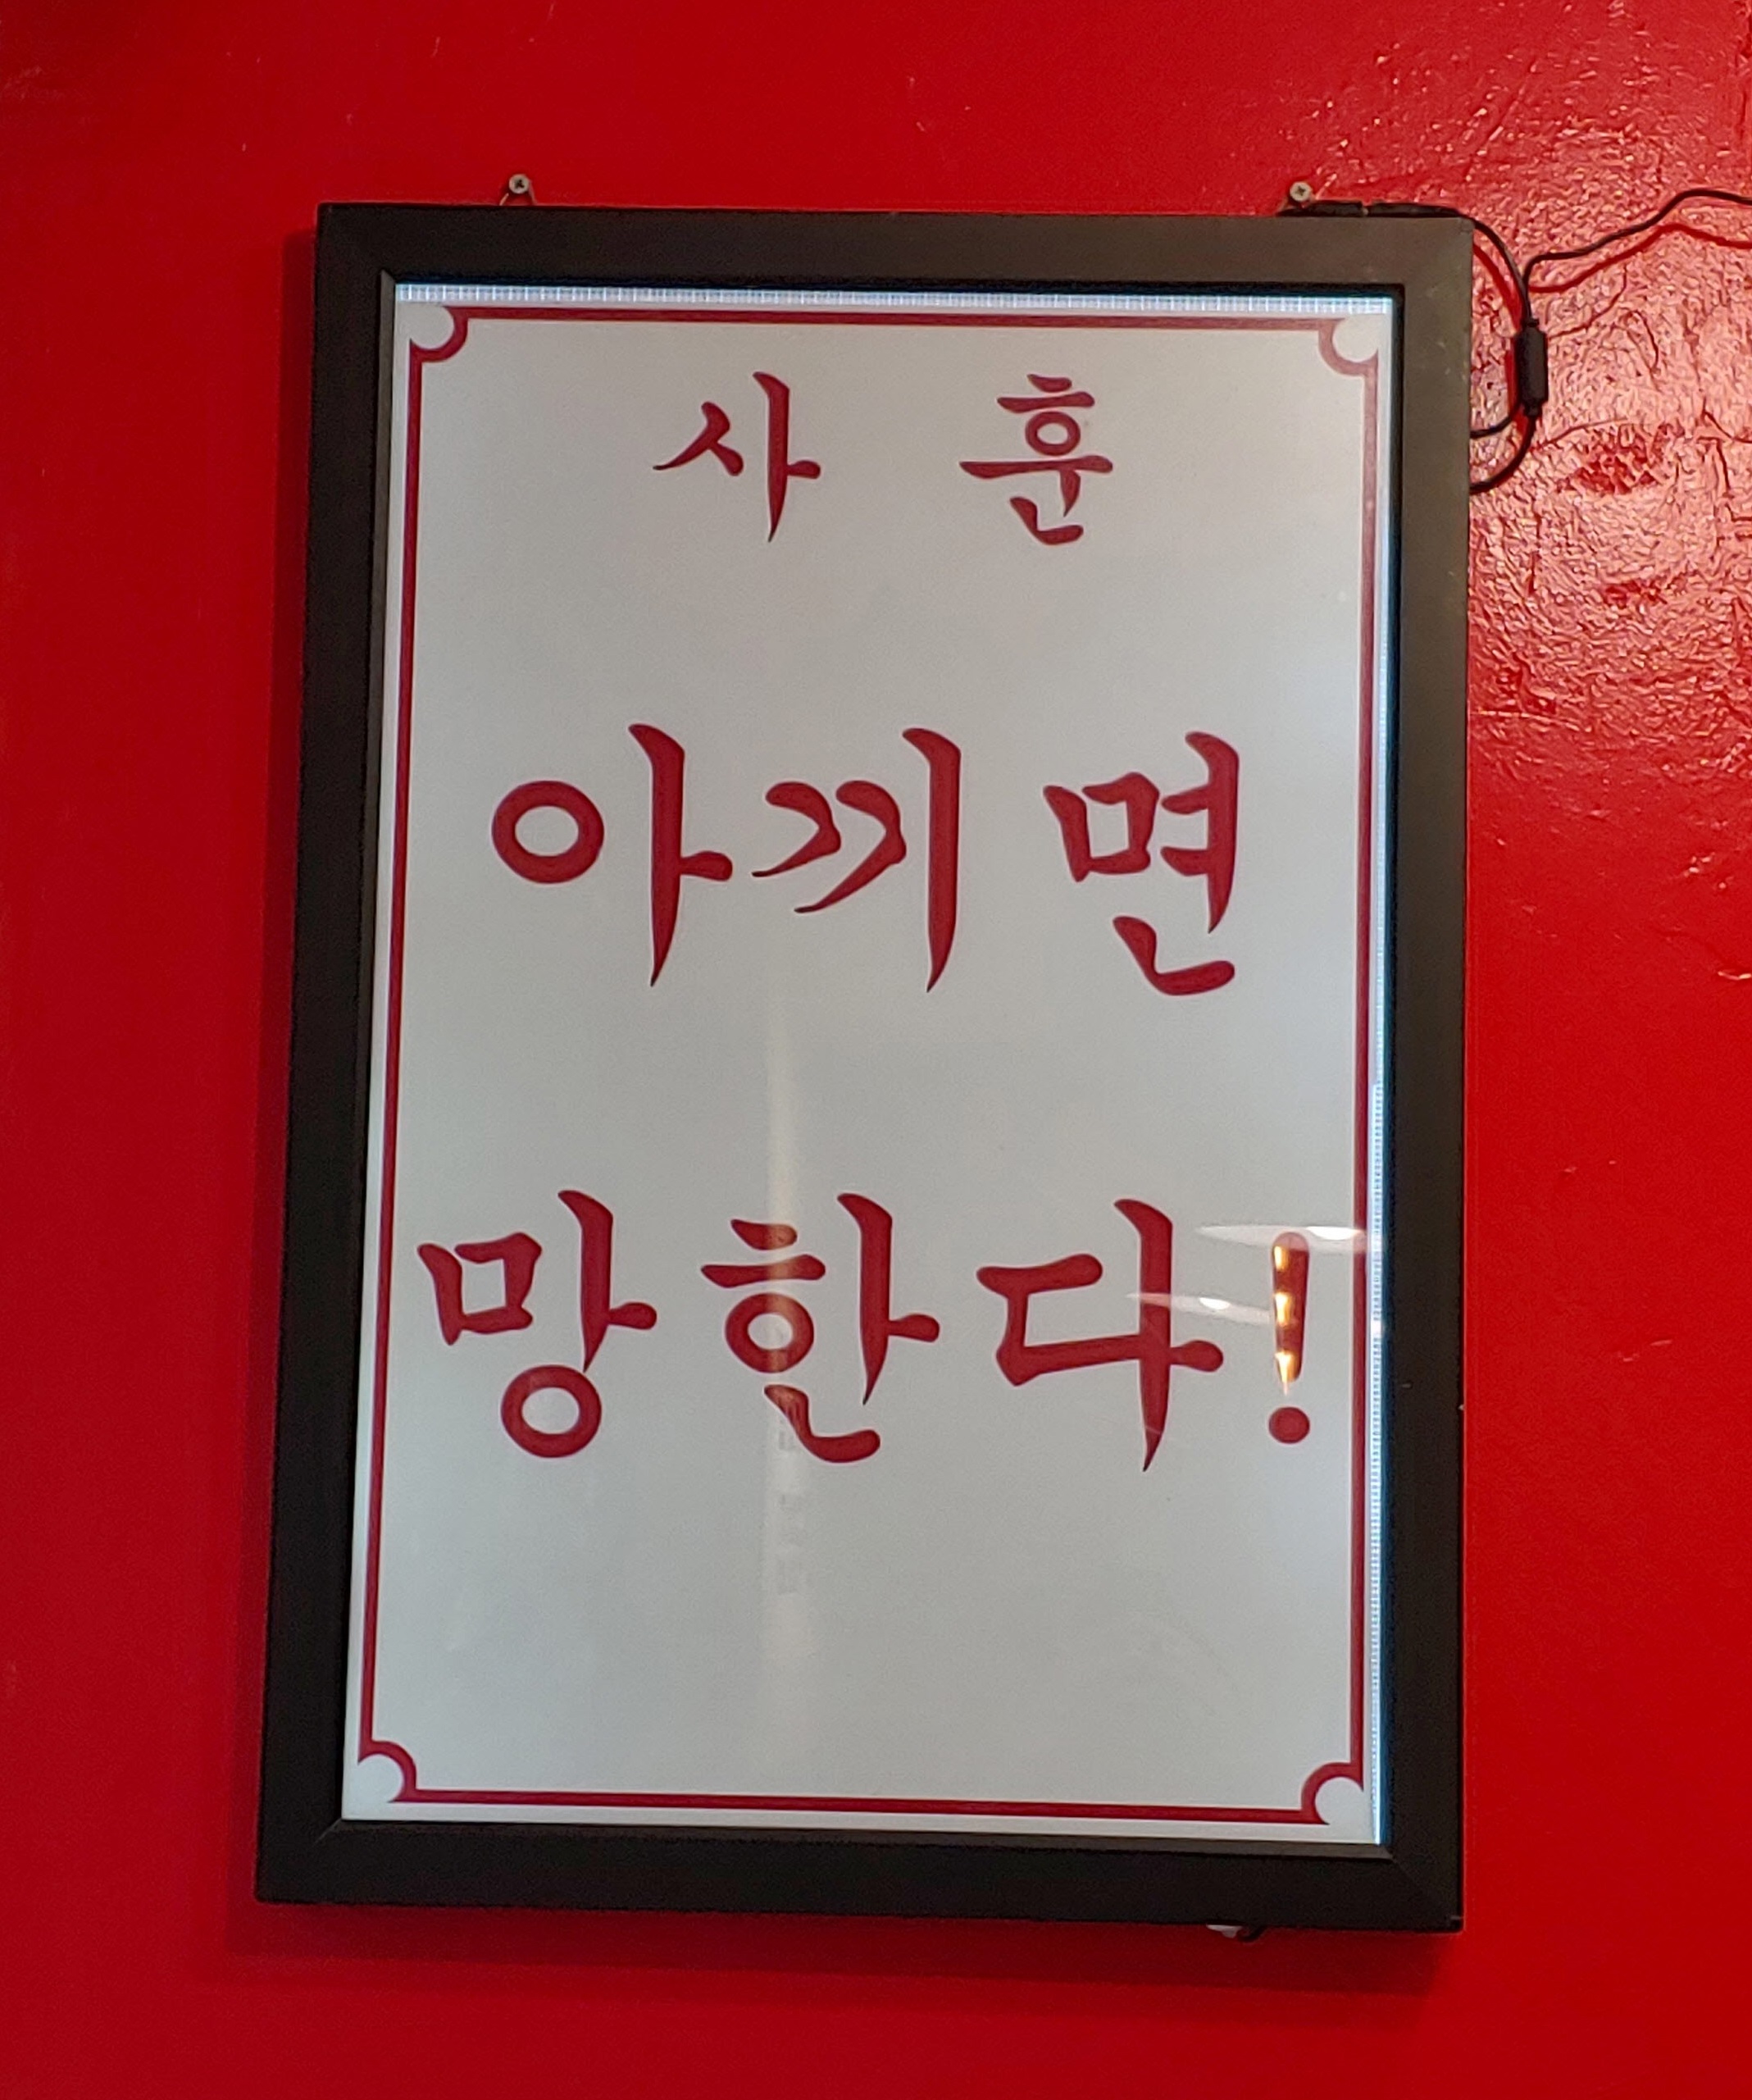 사 훈
아끼면
망한다!